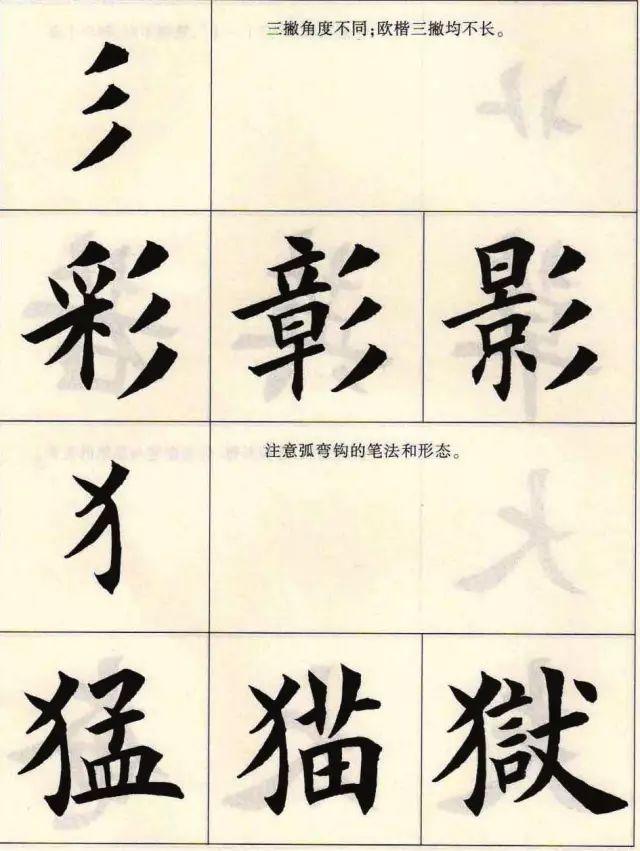 三撇角度不同；欧楷三撇均不长。
彡
彩 彰 影
注意弧弯钩的笔法和形态。
犭
猛 猫 獄